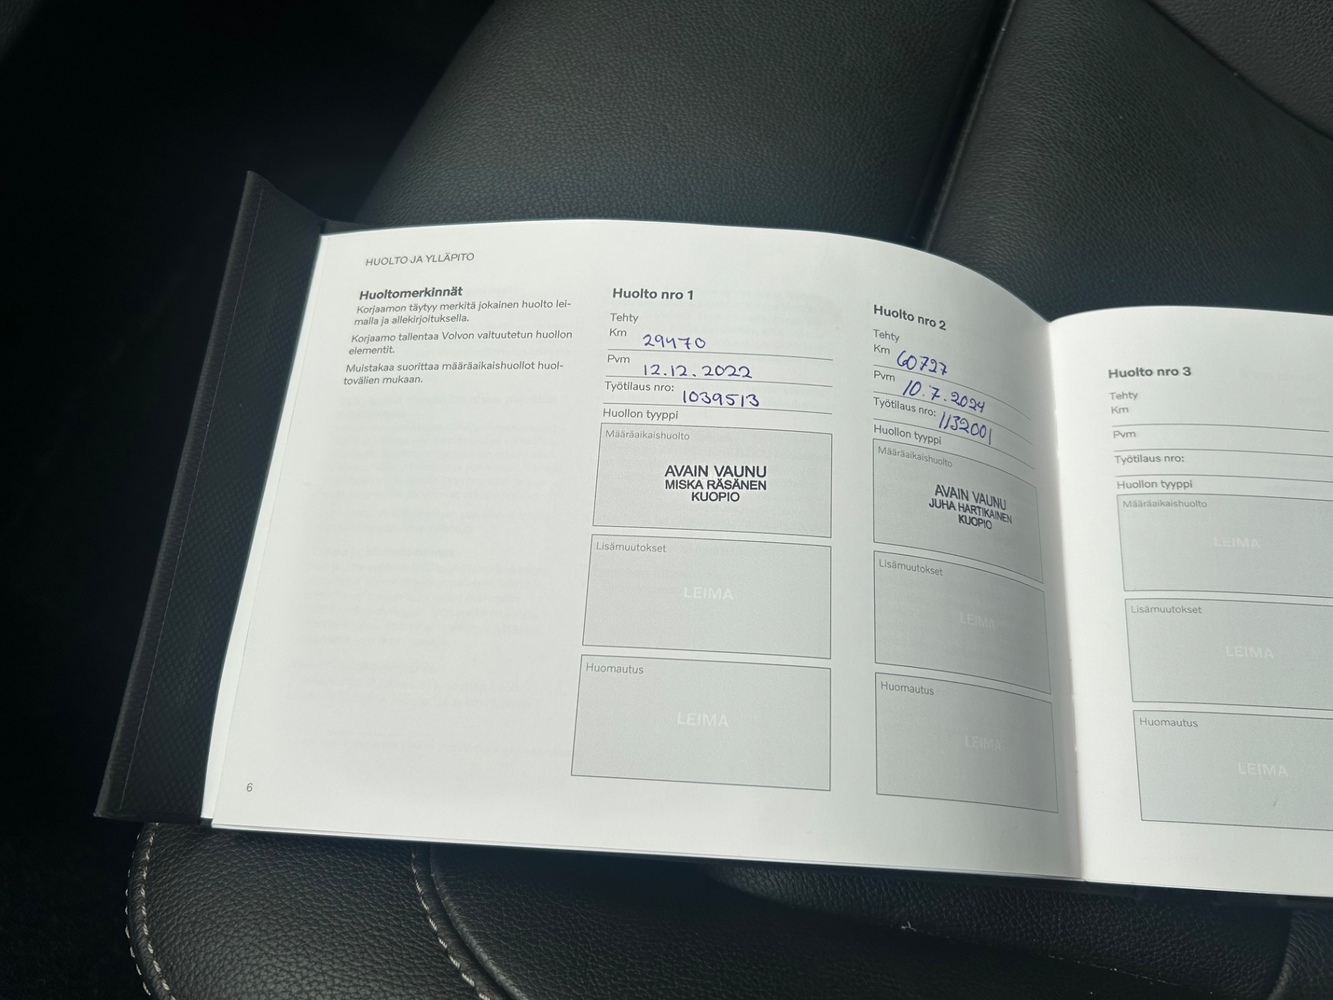 HUOLTO JA YLLÄPITO
Huoltomerkinnät
Korjaamon täytyy merkitä jokainen huolto lei-
malla ja allekirjoituksella.
Korjaamo tallentaa Volvon valtuutetun huollon
elementit.
Muistakaa suorittaa määräaikaishuollot huol-
tovälien mukaan.
6
Huolto nro 1
Tehty
Km 29470
Pvm 12.12.2022
Työtilaus nro: 1039513
Huollon tyyppi
Määräaikaishuolto
AVAIN VAUNU
MISKA RÄSÄNEN
KUOPIO
Lisämuutokset
LEIMA
Huomautus
LEIMA
Huolto nro 2
Tehty
Km 60727
Pvm 10.7.2024
Työtilaus nro: 1132001
Huollon tyyppi
Määräaikaishuolto
AVAIN VAUNU
JUHA HARTIKAINEN
KUOPIO
Lisämuutokset
LEIMA
Huomautus
LEIMA
Huolto nro 3
Tehty
Km
Pvm
Työtilaus nro:
Huollon tyyppi
Määräaikaishuolto
LEIMA
Lisämuutokset
LEIMA
Huomautus
LEIMA